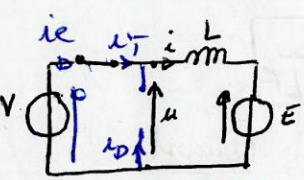 ie iT i L
V u E
iD